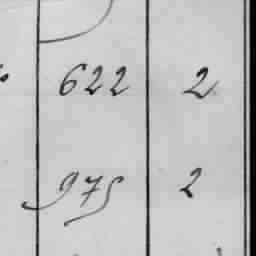 622 2
975 2